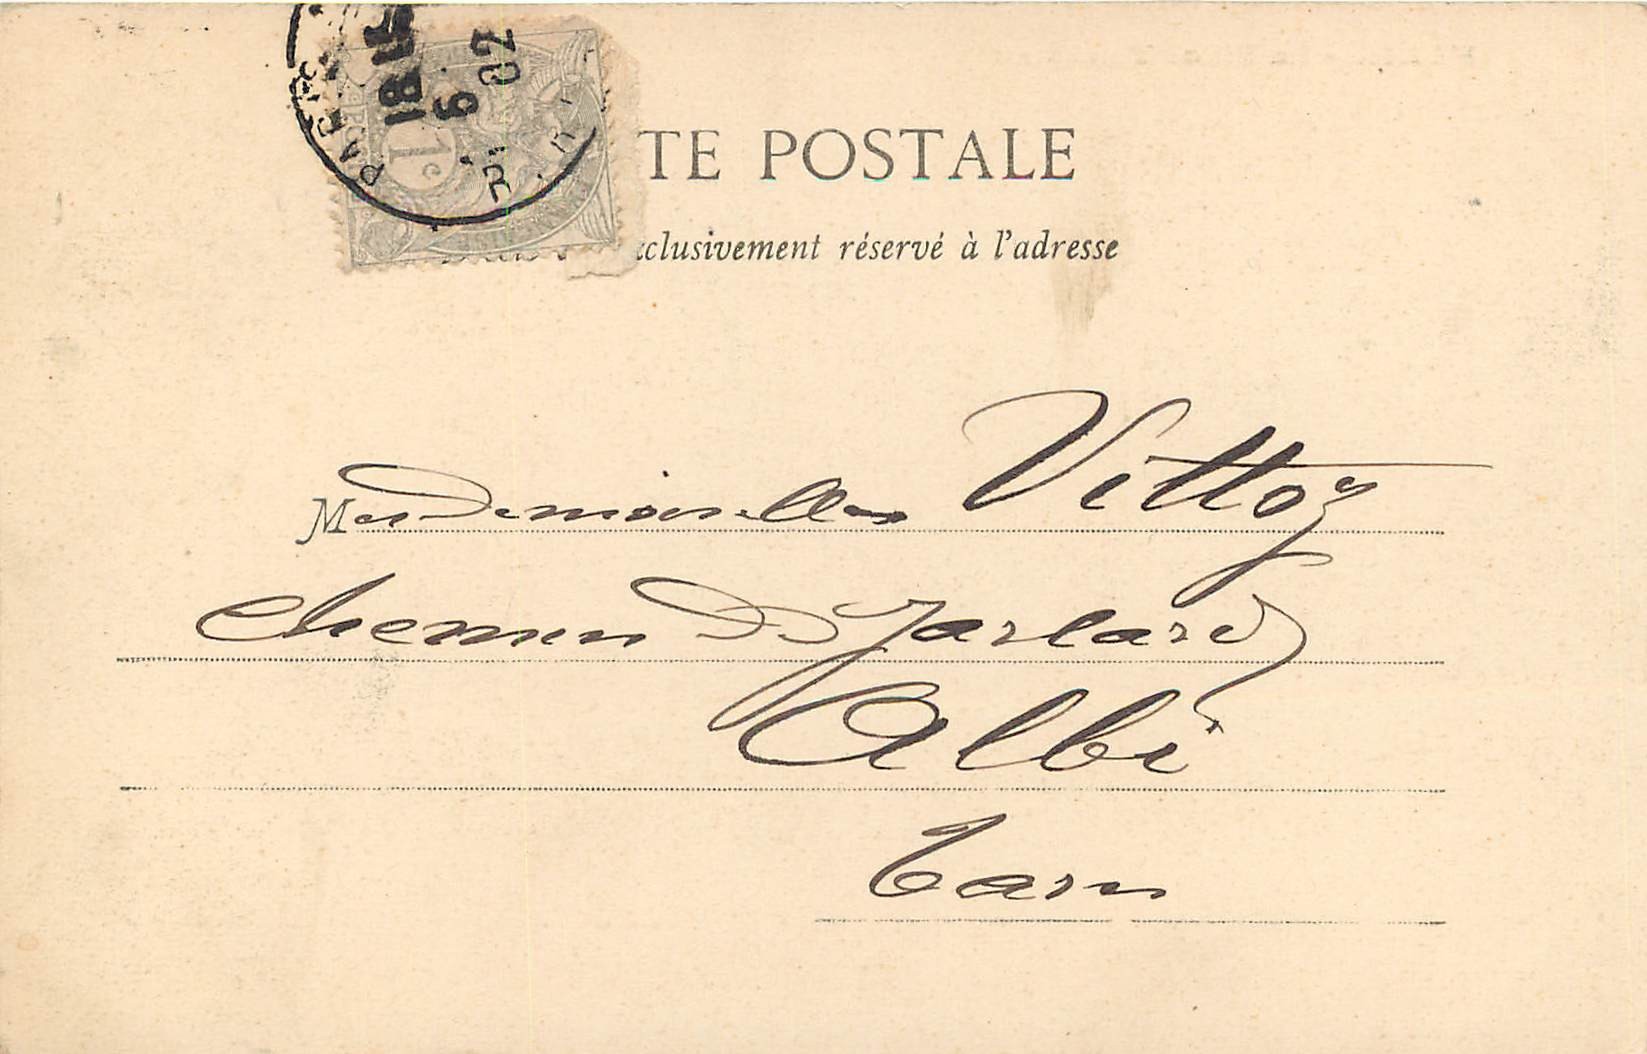 PARIS
18 15
6
02
R.
1c
TE POSTALE
xclusivement réservé à l'adresse
Mesdemoiselles Vittoz
Chemin D Jarlard
Albi
Tarn